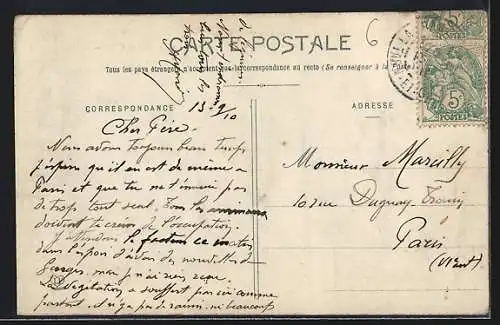 CARTE POSTALE
6
Tous les pays étrangers n'acceptent pas la correspondance au recto (Se renseigner à la Poste)
CORRESPONDANCE
ADRESSE
5c
POSTES
5c
POSTES
13 9/10
Cher Père.
Nous avons toujours beau temps
j'espère qu'il en est de même à
Paris et que tu ne t'ennuie pas
de trop tout seul. Tous les
doivent te créer de l'occupation.
J'attendais le facteur ce matin
dans l'espoir d'avoir des nouvelles de
Georges mais je n'ai rien reçu.
La végétation a souffert par ici comme
partout. et n'y a pas de raisin, ni beaucoup
Monsieur Marcilly
10 rue Duguay Trouin
Paris
(VIent)